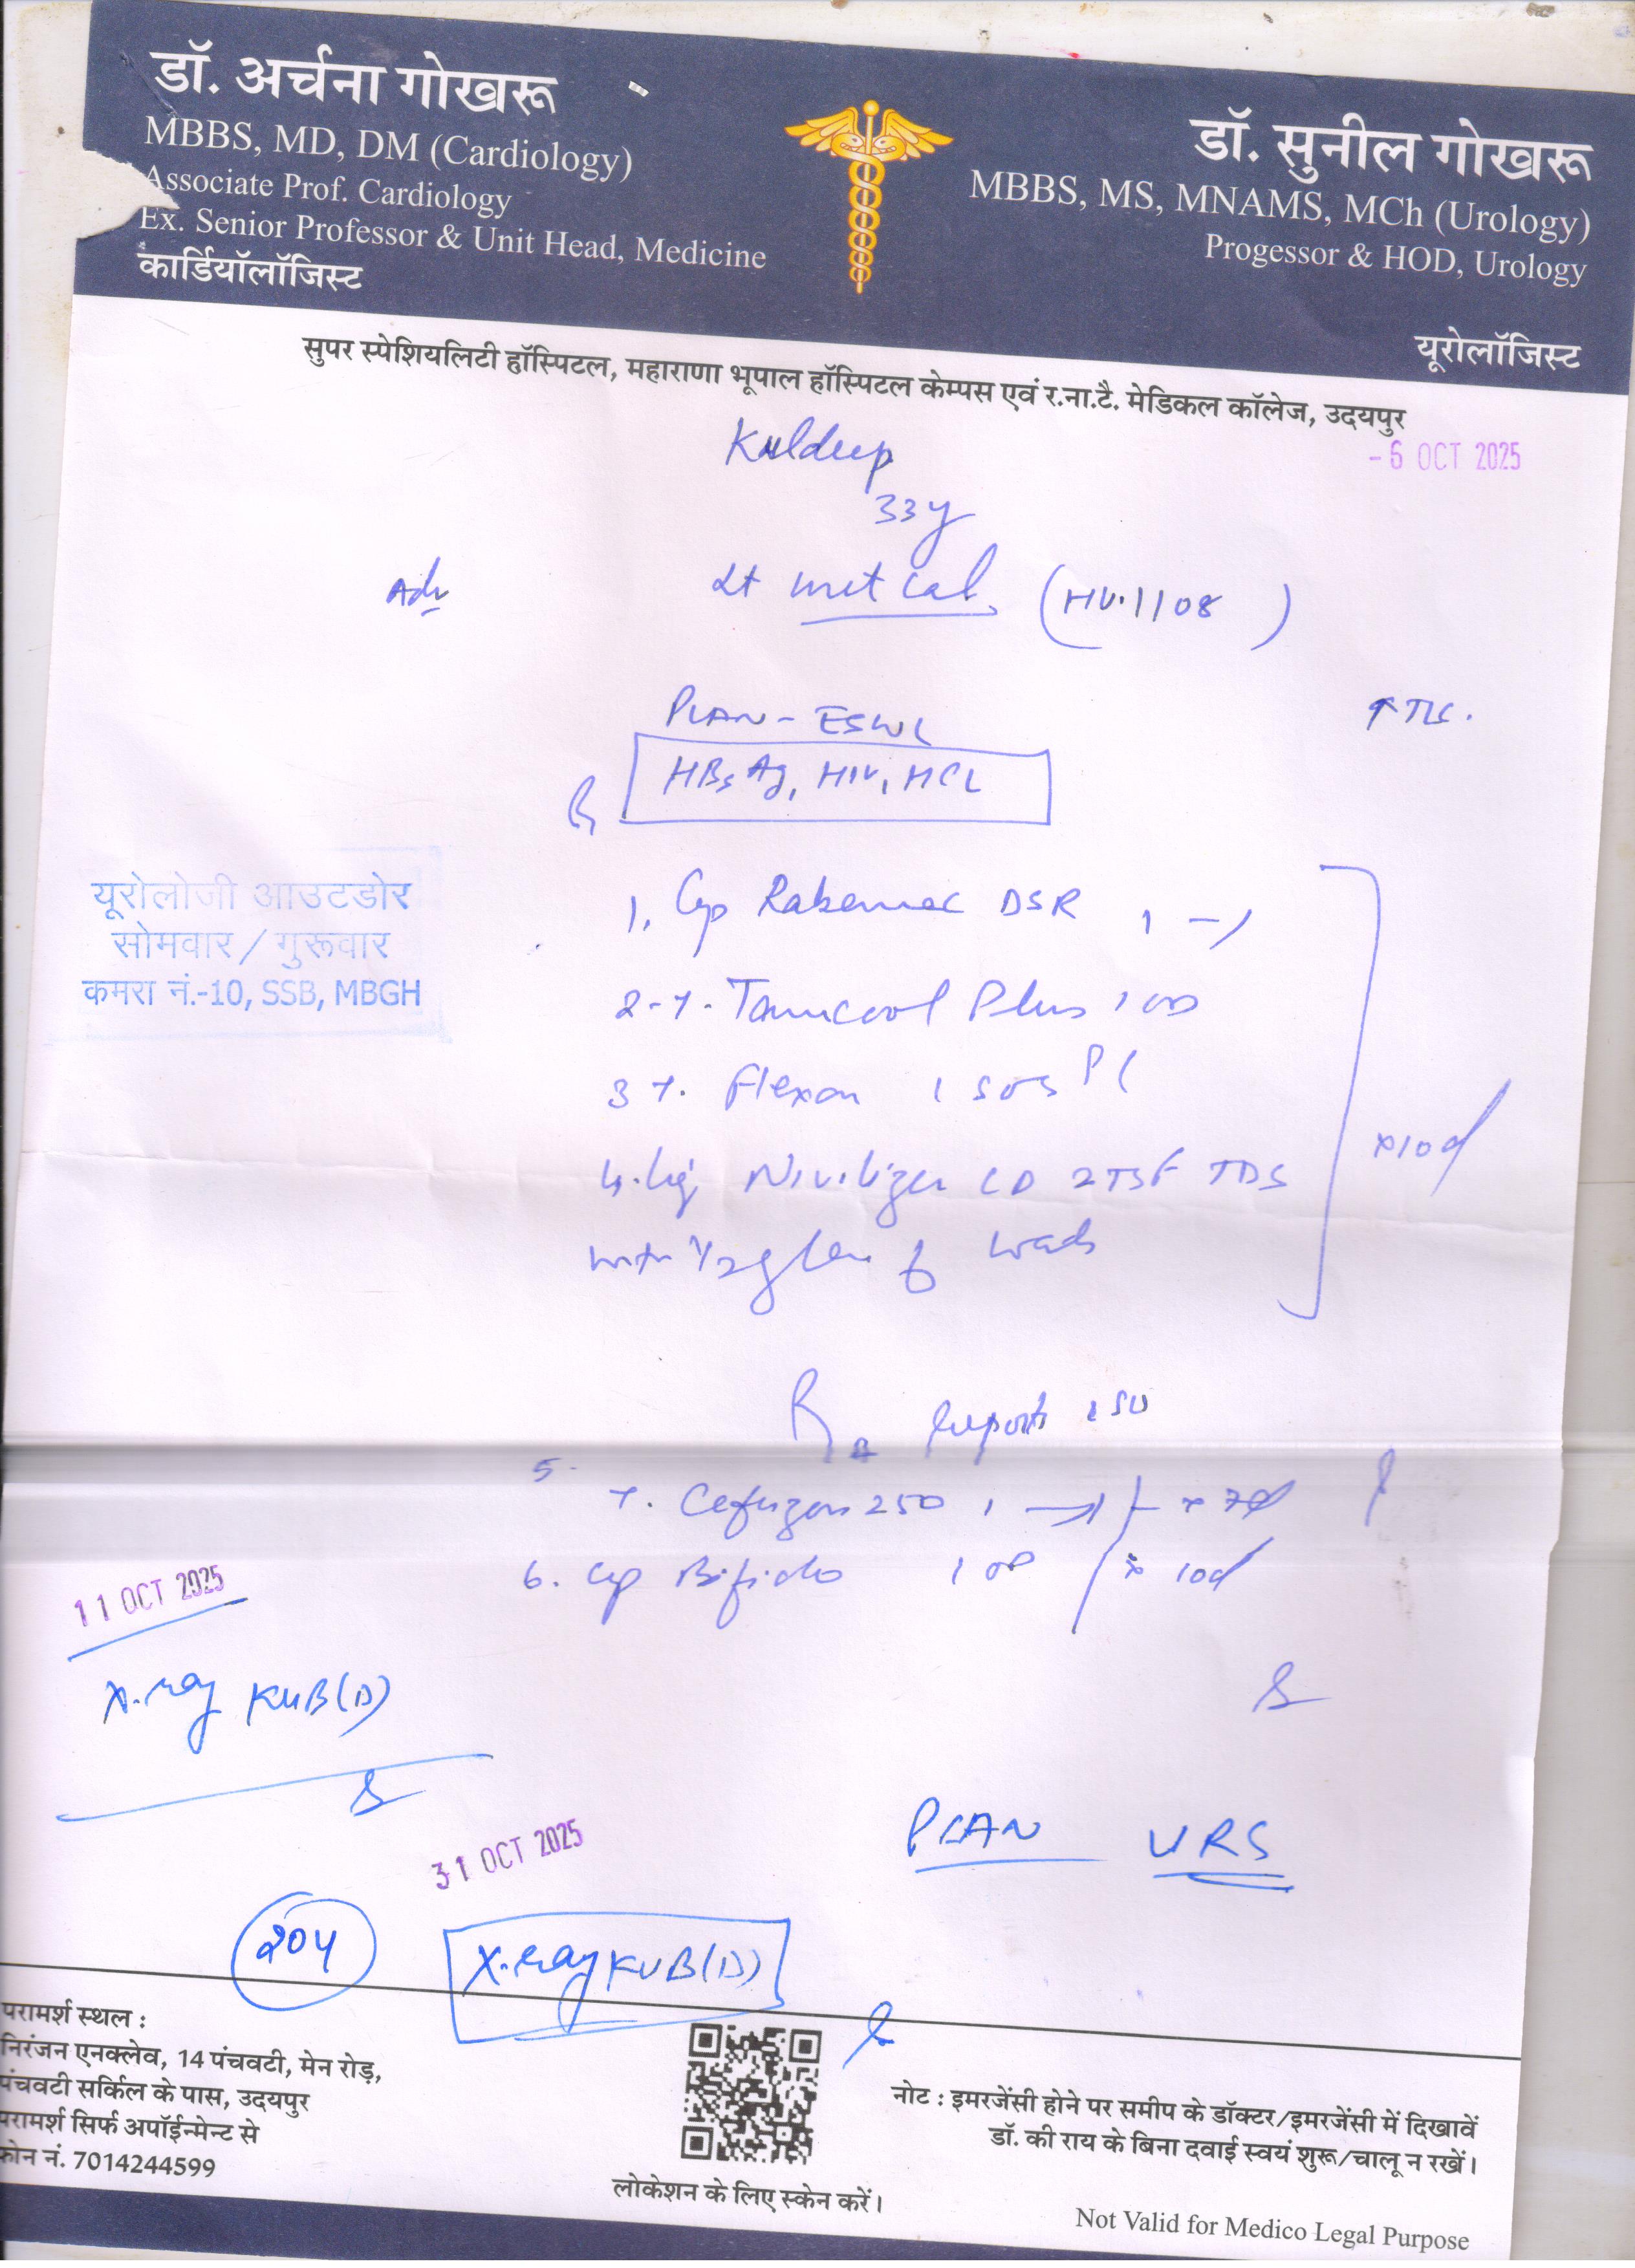 डॉ. अर्चना गोखरू
MBBS, MD, DM (Cardiology)
Associate Prof. Cardiology
Ex. Senior Professor & Unit Head, Medicine
कार्डियॉलॉजिस्ट
डॉ. सुनील गोखरू
MBBS, MS, MNAMS, MCh (Urology)
Progessor & HOD, Urology
यूरोलॉजिस्ट
सुपर स्पेशियलिटी हॉस्पिटल, महाराणा भूपाल हॉस्पिटल केम्पस एवं र.ना.टै. मेडिकल कॉलेज, उदयपुर
- 6 OCT 2025
Kuldeep
33y
Adv
Lt Uret Cal. (HU.1108)
PLAN - ESWL
↑ TLC.
HBsAg, HIV, HCV
यूरोलोजी आउटडोर
सोमवार / गुरूवार
कमरा नं.-10, SSB, MBGH
1. Cap DSR 1 -1
2- T. Plus 1 OD
3 T. Flexon 1 SOS
4. Liq 2 TSF TDS
with 1/2 glass of
x 10d
Reports
5.
T. 250 1 - 1 x 7d
6. Cap 1 OD x 10d
11 OCT 2025
X-ray KUB(D)
31 OCT 2025
PLAN URS
204
X-ray KUB(D)
परामर्श स्थल :
निरंजन एनक्लेव, 14 पंचवटी, मेन रोड़,
पंचवटी सर्किल के पास, उदयपुर
परामर्श सिर्फ अपॉईन्मेन्ट से
फोन नं. 7014244599
लोकेशन के लिए स्केन करें।
नोट : इमरजेंसी होने पर समीप के डॉक्टर/इमरजेंसी में दिखावें
डॉ. की राय के बिना दवाई स्वयं शुरू/चालू न रखें।
Not Valid for Medico Legal Purpose